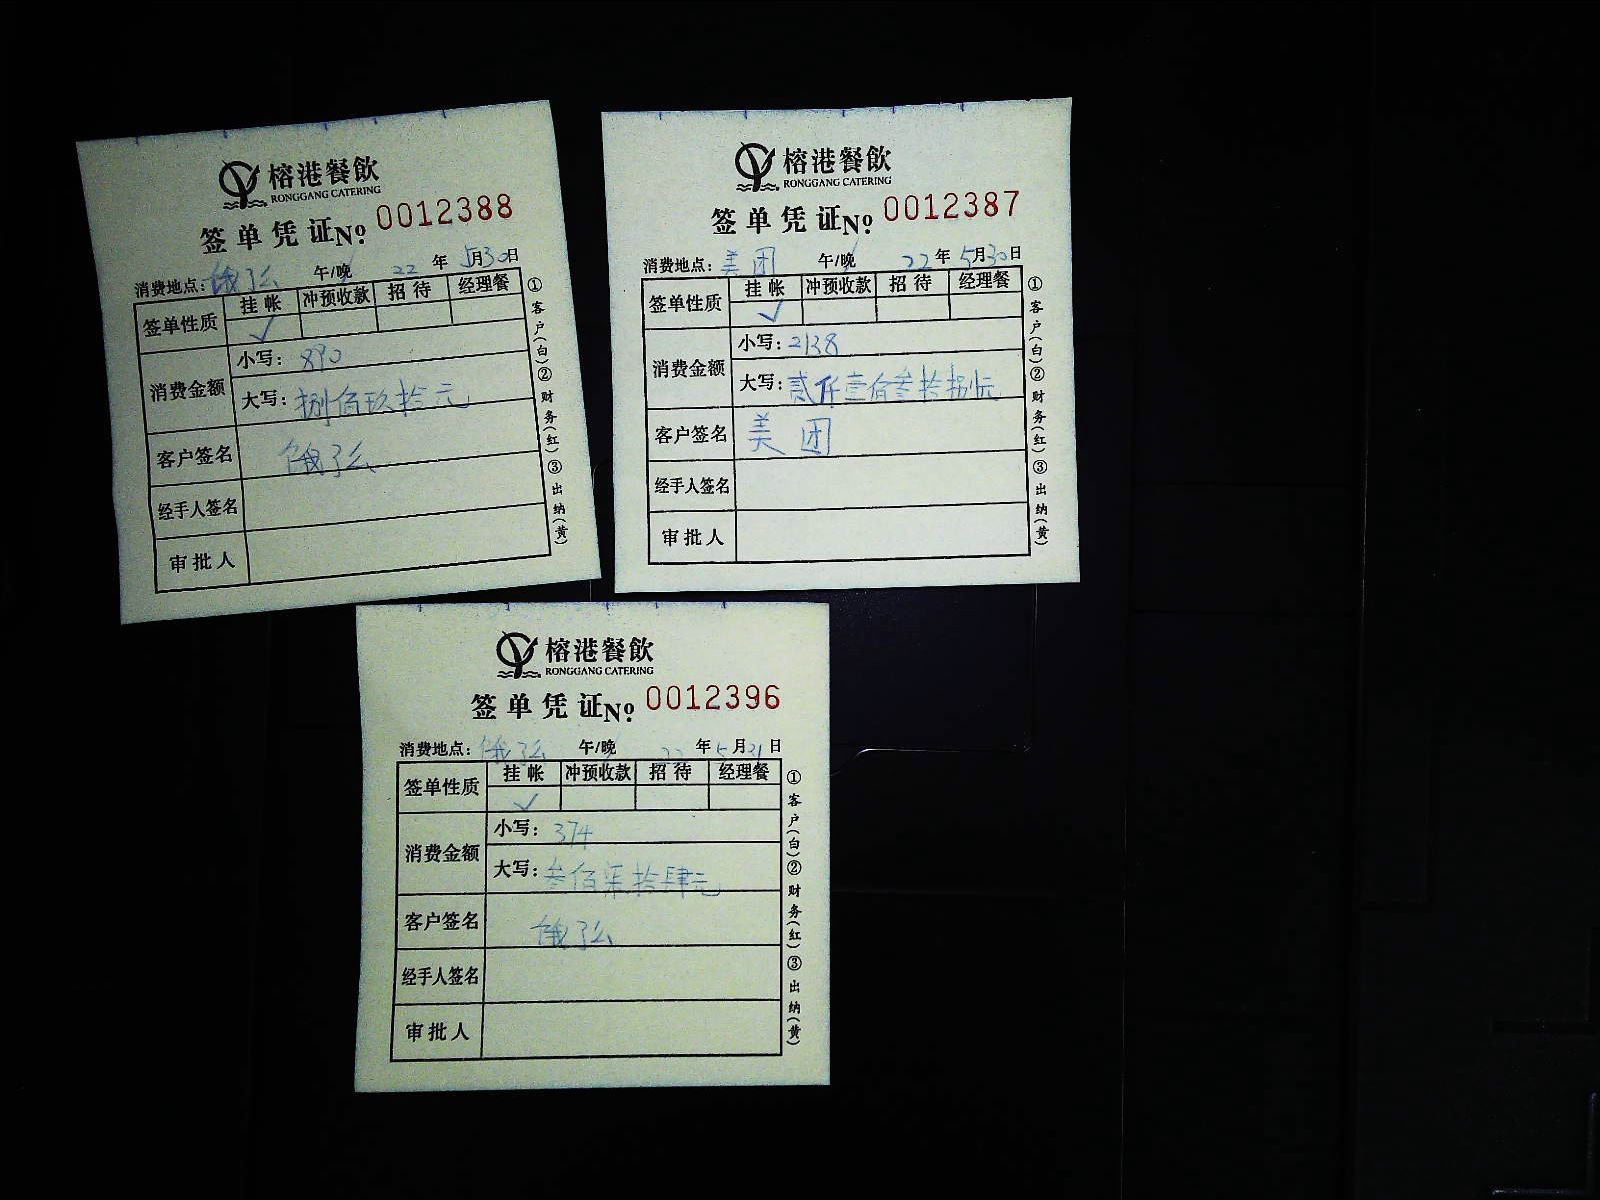 榕港餐飲
RONGGANG CATERING
签单凭证№ 0012388
消费地点：饿了么 午/晚 22年5月30日
签单性质 挂帐 冲预收款 招待 经理餐
✓
消费金额 小写：890
大写：捌佰玖拾元
客户签名 饿了么
经手人签名
审批人
①客户(白)②财务(红)③出纳(黄)
榕港餐飲
RONGGANG CATERING
签单凭证№ 0012387
消费地点：美团 午/晚 22年5月30日
签单性质 挂帐 冲预收款 招待 经理餐
✓
消费金额 小写：2138
大写：贰仟壹佰叁拾捌元
客户签名 美团
经手人签名
审批人
①客户(白)②财务(红)③出纳(黄)
榕港餐飲
RONGGANG CATERING
签单凭证№ 0012396
消费地点：饿了么 午/晚 22年5月31日
签单性质 挂帐 冲预收款 招待 经理餐
✓
消费金额 小写：374
大写：叁佰柒拾肆元
客户签名 饿了么
经手人签名
审批人
①客户(白)②财务(红)③出纳(黄)